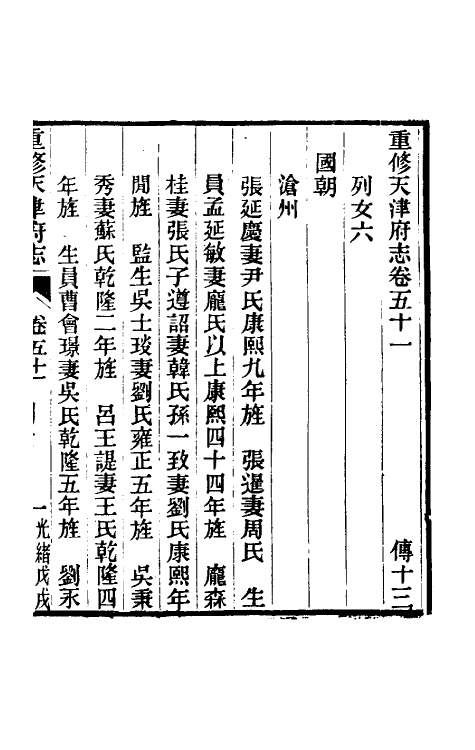 重修天津府志卷五十一　傳十三
列女六
國朝
滄州
張延慶妻尹氏康熙九年旌　張暹妻周氏　生
員孟延敏妻龐氏以上康熙四十四年旌　龐森
桂妻張氏子遵詔妻韓氏孫一致妻劉氏康熙年
間旌　監生吳士琰妻劉氏雍正五年旌　吳秉
秀妻蘇氏乾隆二年旌　呂王諟妻王氏乾隆四
年旌　生員曹會璟妻吳氏乾隆五年旌　劉永
重修天津府志　卷五十一　一　光緒戊戌